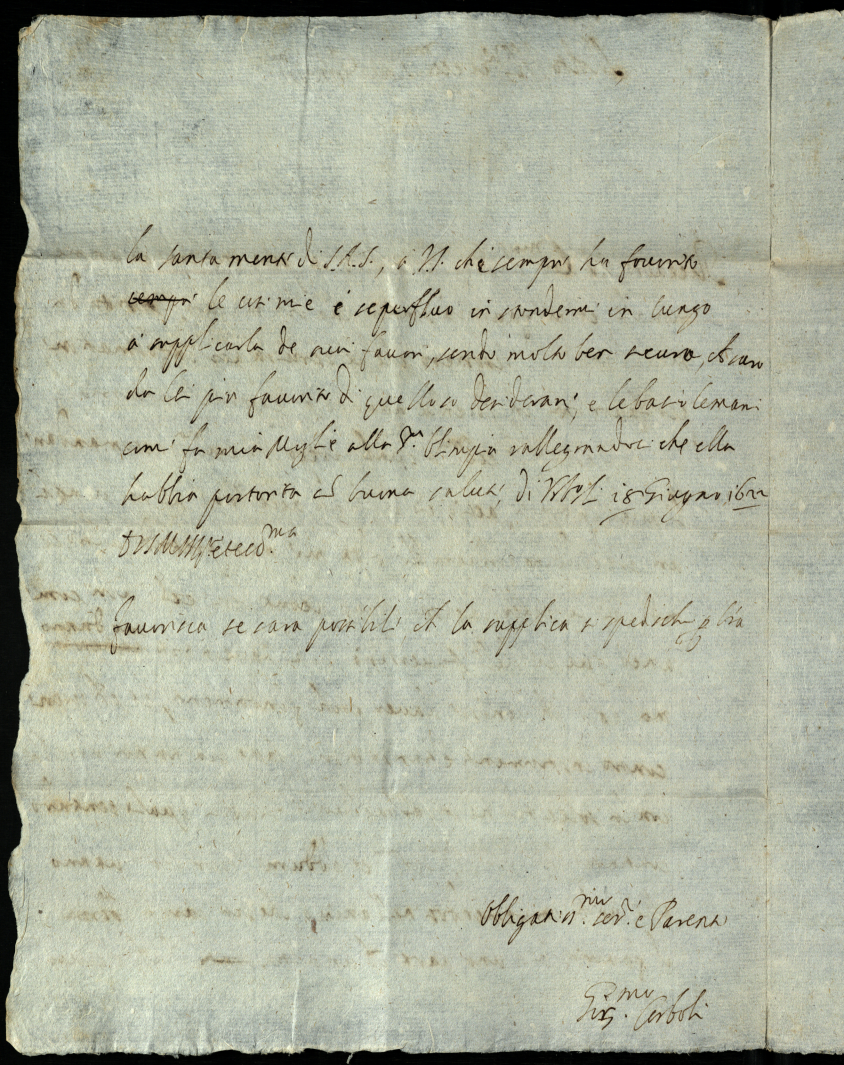 la santa mente di S.A.S., a VS. che sempre ha favorito
sempre le cose mie è superfluo in stendermi in lungo
a supplicarla de suoi favori, sendo molto ben sicuro, ch saro
da lei più favorito di quello so desiderare, e le bacio le mani
come fa mia Moglie alla Sra. Olimpia rallegrandoci che ella
habbia partorito con buona salute, di 18 Giugno 16
D VS Molto Illre et ecc.ma
favorisca se sara possibile ch la supplica si spedisca
Obligatiss.mo ser.re e Parente
Gir.mo Cerboli